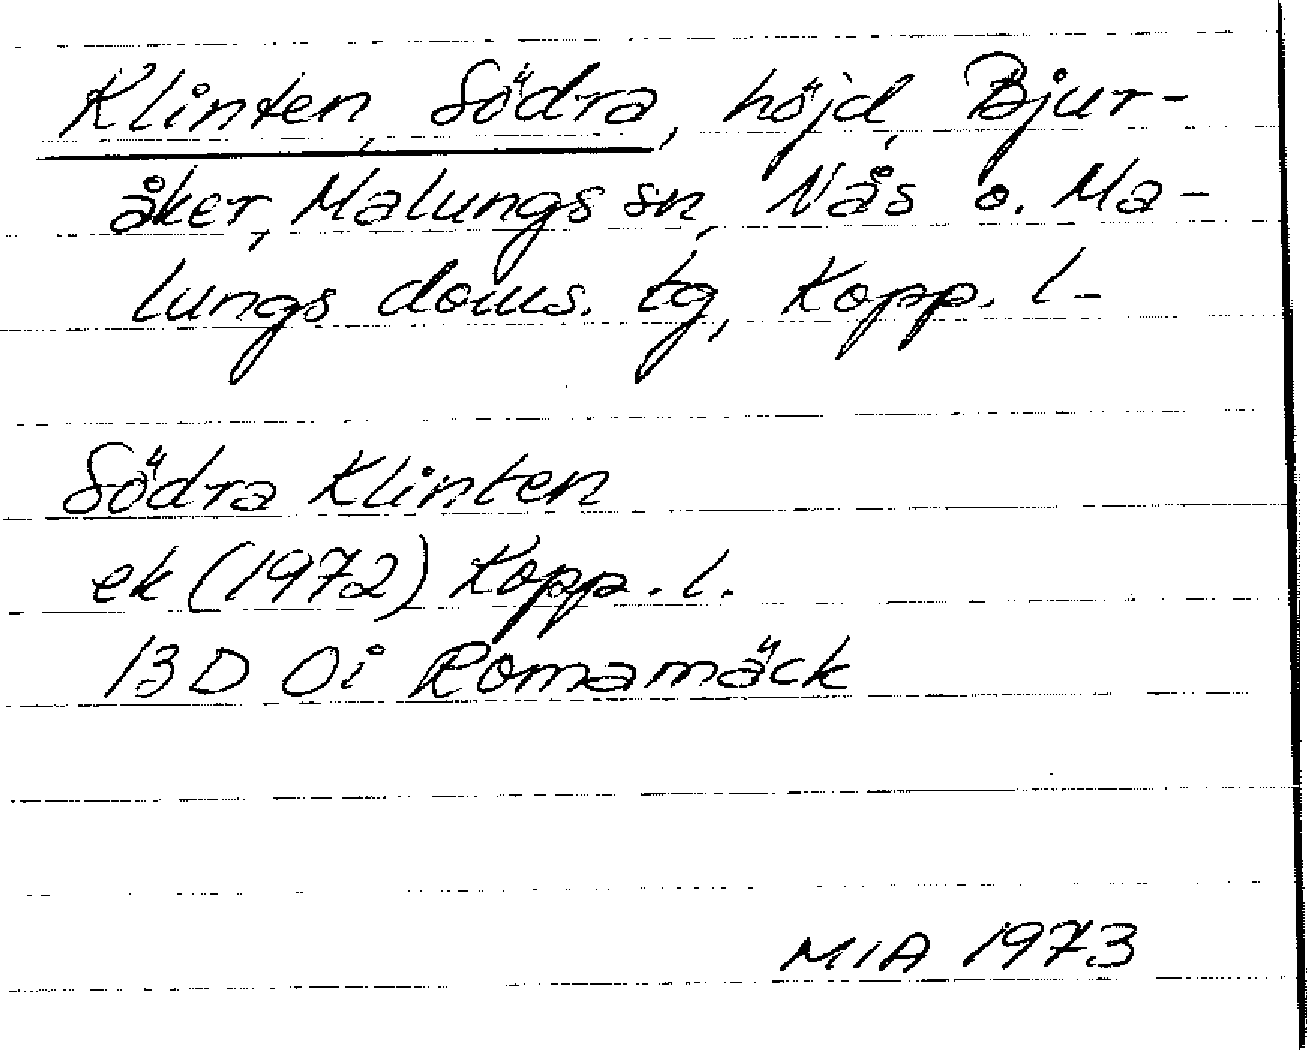 Klinten, Södra, höjd, Bjur-
åker, Malungs sn, Nås o. Ma-
lungs doms. tg, Kopp. l.
Södra Klinten
ek (1972) Kopp. l.
13D 0i Romamäck
MIA 1973